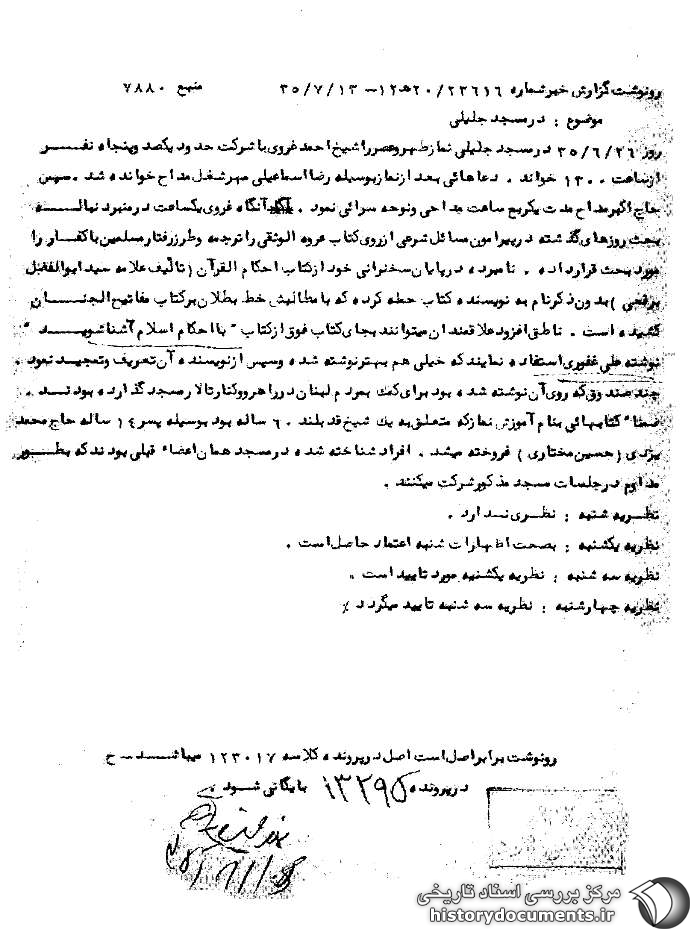 رونوشت گزارش خبر شماره ۲۳۶۱۶/۲۰ه۱۲-۳۵/۷/۱۳ منبع ۷۸۸۰
موضوع : در مسجد جلیلی
روز ۳۵/۶/۲۶ در مسجد جلیلی نماز ظهر و عصر را شیخ احمد غروی با شرکت حدود یکصد و پنجاه نفر
از ساعت ۱۳۰۰ خواند . دعاهائی بعد از نماز بوسیله رضا اسماعیلی مهر شغل مداح خوانده شد . سپس
حاج اکبر مداح مدت یکربع ساعت مداحی و نوحه سرائی نمود . آنگاه غروی یکساعت در منبر دنباله
بحث روزهای گذشته در پیرامون مسائل شرعی از روی کتاب عروه الوثقی را ترجمه و طرز رفتار مسلمین با کفار را
مورد بحث قرار داده . نامبرده در پایان سخنرانی خود از کتاب احکام القرآن ( تألیف علامه سید ابوالفضل
برقعی ) بدون ذکر نام به نویسنده کتاب حمله کرده که با مطالبش خط بطلان بر کتاب مفاتیح الجنان
کشیده است . ناطق افزود علاقمندان میتوانند بجای کتاب فوق از کتاب " با احکام اسلام آشنا شوید "
نوشته علی غفوری استفاده نمایند که خیلی هم بهتر نوشته شده و سپس از نویسنده آن تعریف و تمجید نمود .
چند صندوق که روی آن نوشته شده بود برای کمک بمردم لبنان در راهرو و کنار تالار مسجد گذارده بودند .
ضمنا" کتابهائی بنام آموزش نماز که متعلق به یک شیخ قد بلند . ۶ ساله بود بوسیله پسر ۱۴ ساله حاج محمد
یزدی ( حسین مختاری ) فروخته میشد . افراد شناخته شده در مسجد همان اعضاء قبلی بودند که بطور
مداوم در جلسات مسجد مذکور شرکت میکنند .
نظریه شنبه : نظری ندارد .
نظریه یکشنبه : بصحت اظهارات شنبه اعتماد حاصل است .
نظریه سه شنبه : نظریه یکشنبه مورد تایید است .
نظریه چهارشنبه : نظریه سه شنبه تایید میگردد ٪
رونوشت برابر اصل است اصل در پرونده کلاسه ۱۲۳۰۱۷ میباشد - ح
در پرونده ۱۳۲۹۵ بایگانی شود .
مرکز بررسی اسناد تاریخی
historydocuments.ir